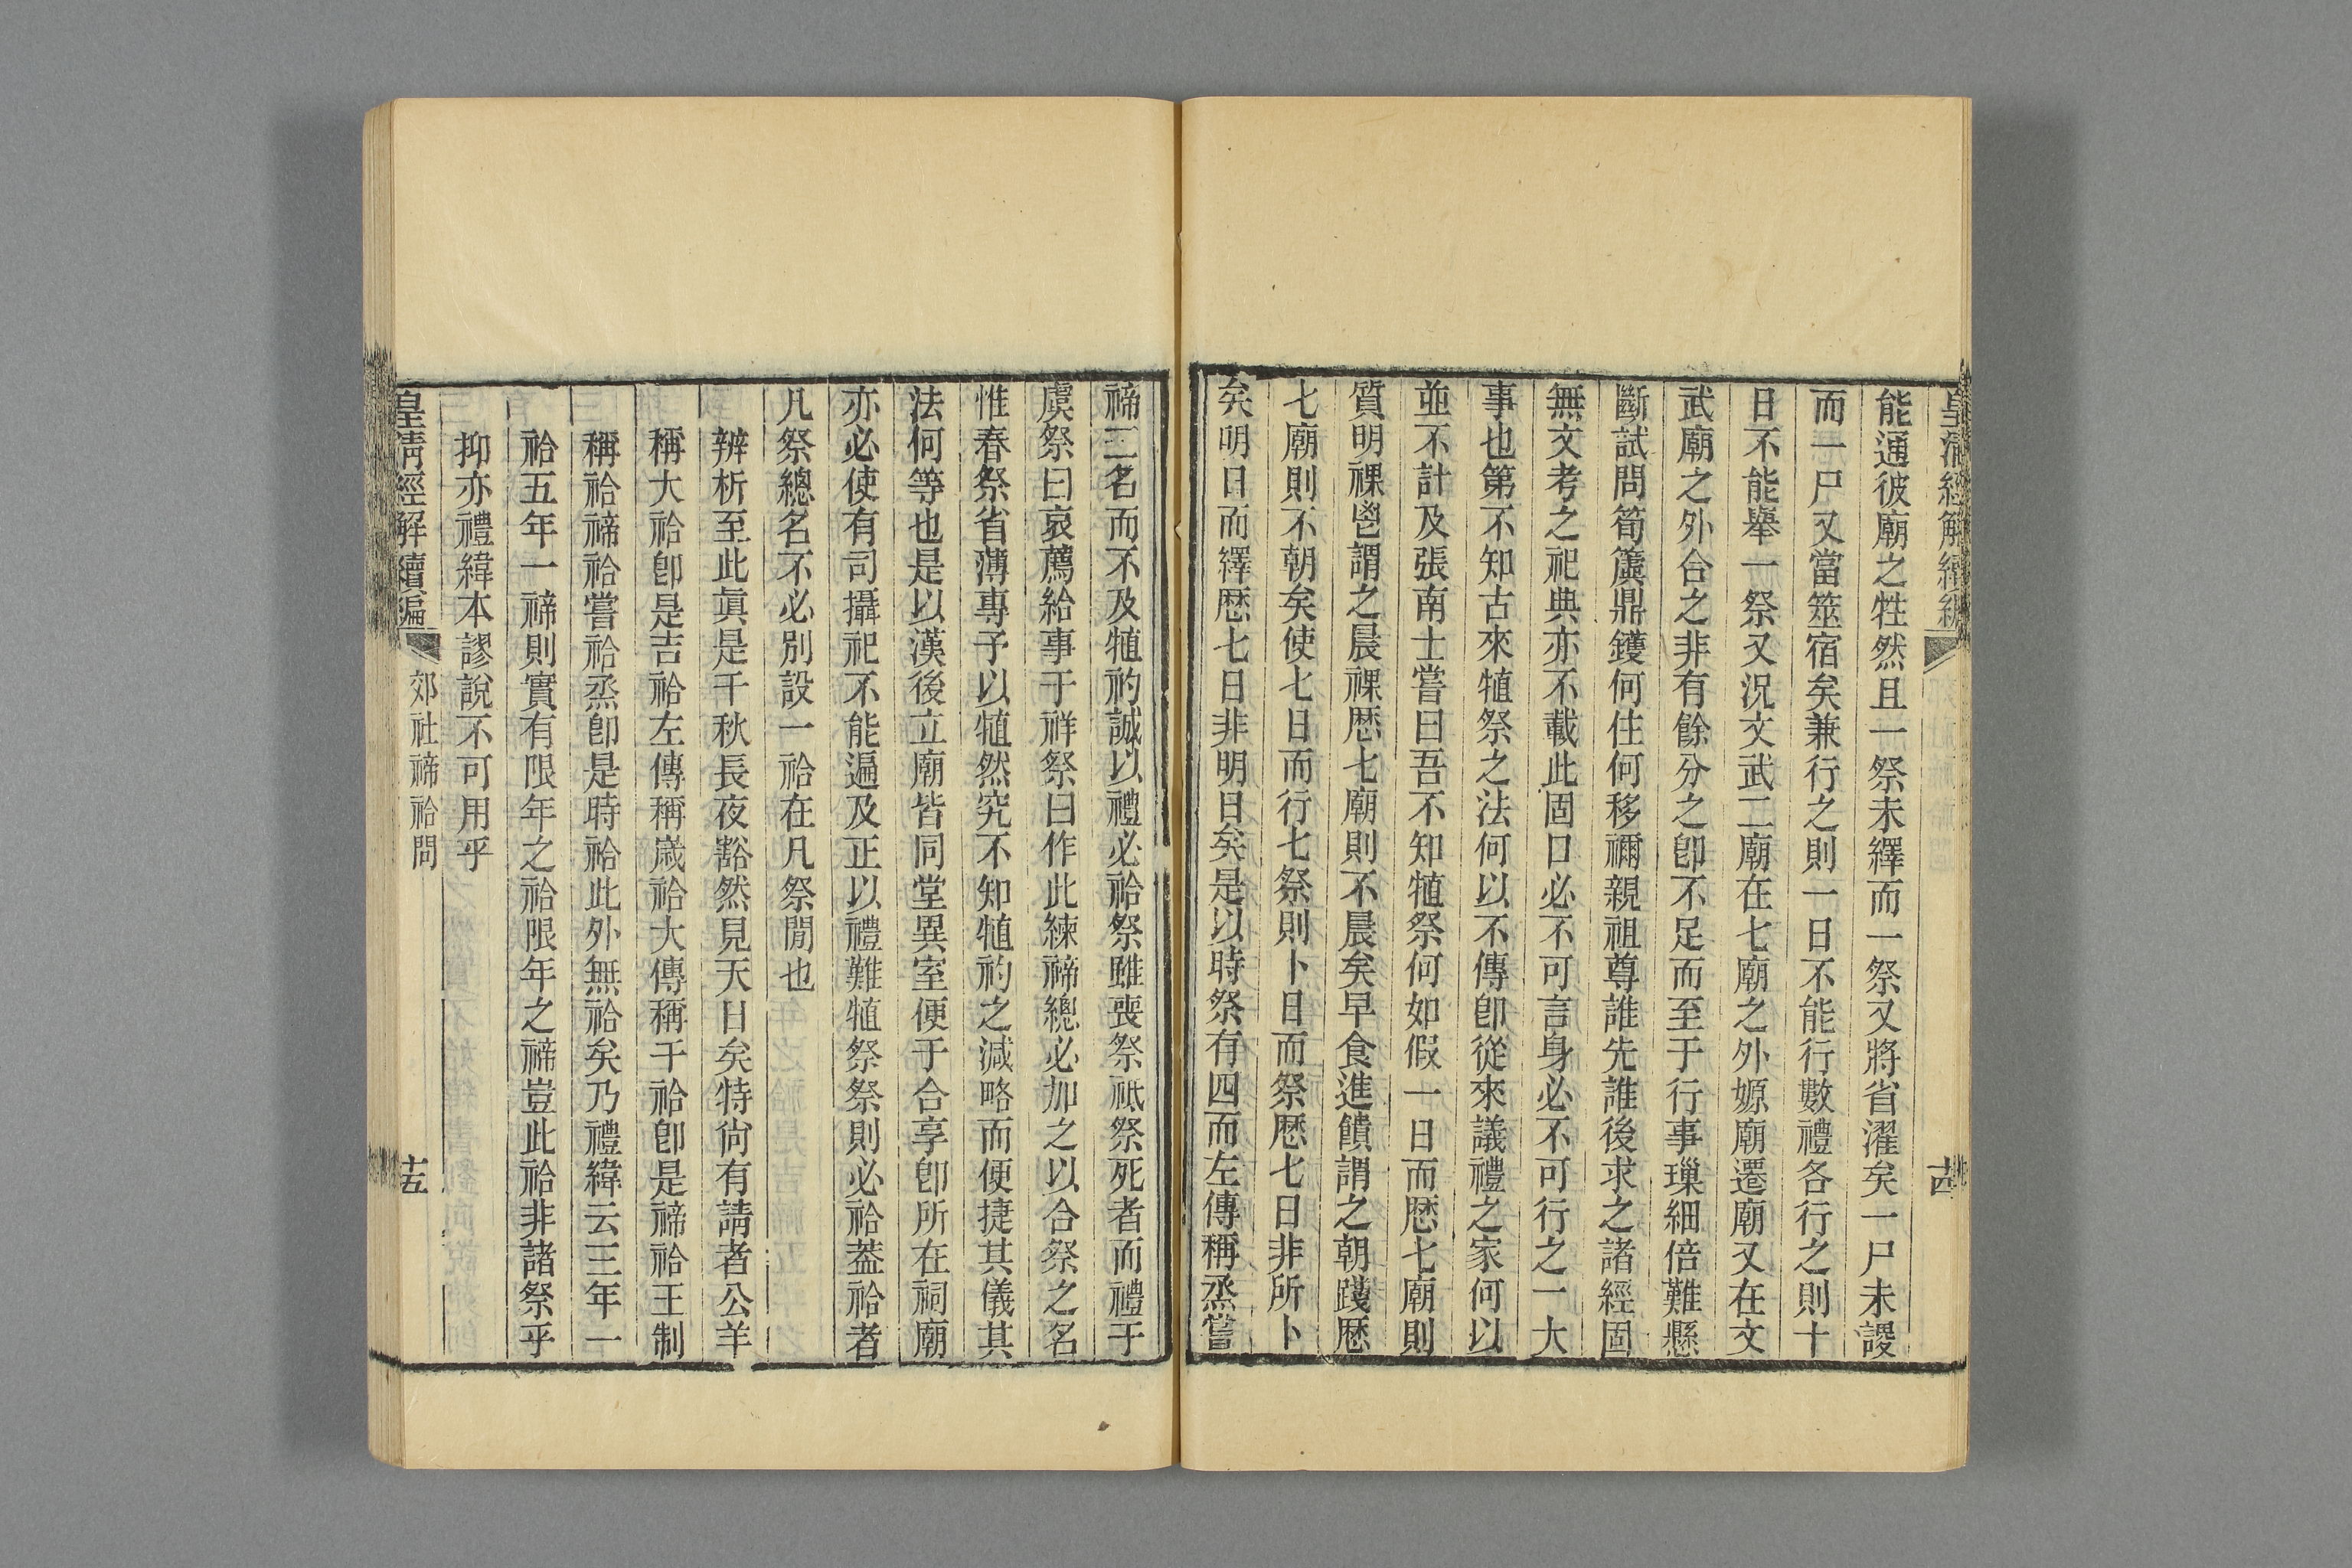 皇清經解續編
十四
能通彼廟之牲然且一祭未繹而一祭又將省濯矣一尸未謖
而一尸又當筮宿矣兼行之則一日不能行數禮各行之則十
日不能舉一祭又況文武二廟在七廟之外嫄廟遷廟又在文
武廟之外合之非有餘分之卽不足而至于行事璅細倍難懸
斷試問筍簴鼎鑊何住何移禰親祖尊誰先誰後求之諸經固
無文考之祀典亦不載此固口必不可言身必不可行之一大
事也第不知古來犆祭之法何以不傳卽從來議禮之家何以
並不計及張南士嘗曰吾不知犆祭何如假一日而歷七廟則
質明祼鬯謂之晨祼歷七廟則不晨矣早食進饋謂之朝踐歷
七廟則不朝矣使七日而行七祭則卜日而祭歷七日非所卜
矣明日而繹歷七日非明日矣是以時祭有四而左傳稱烝嘗
禘三名而不及犆礿誠以禮必祫祭雖喪祭祗祭死者而禮于
虞祭曰哀薦給事于祥祭曰作此練禘總必加之以合祭之名
惟春祭省薄專予以犆然究不知犆礿之減略而便捷其儀其
法何等也是以漢後立廟皆同堂異室便于合享卽所在祠廟
亦必使有司攝祀不能遍及正以禮難犆祭祭則必祫葢祫者
凡祭總名不必別設一祫在凡祭閒也
辨析至此眞是千秋長夜豁然見天日矣特尙有請者公羊
稱大祫卽是吉祫左傳稱嵗祫大傳稱干祫卽是禘祫王制
稱祫禘祫嘗祫烝卽是時祫此外無祫矣乃禮緯云三年一
祫五年一禘則實有限年之祫限年之禘豈此祫非諸祭乎
抑亦禮緯本謬說不可用乎
皇清經解續編
郊社禘祫問
十五